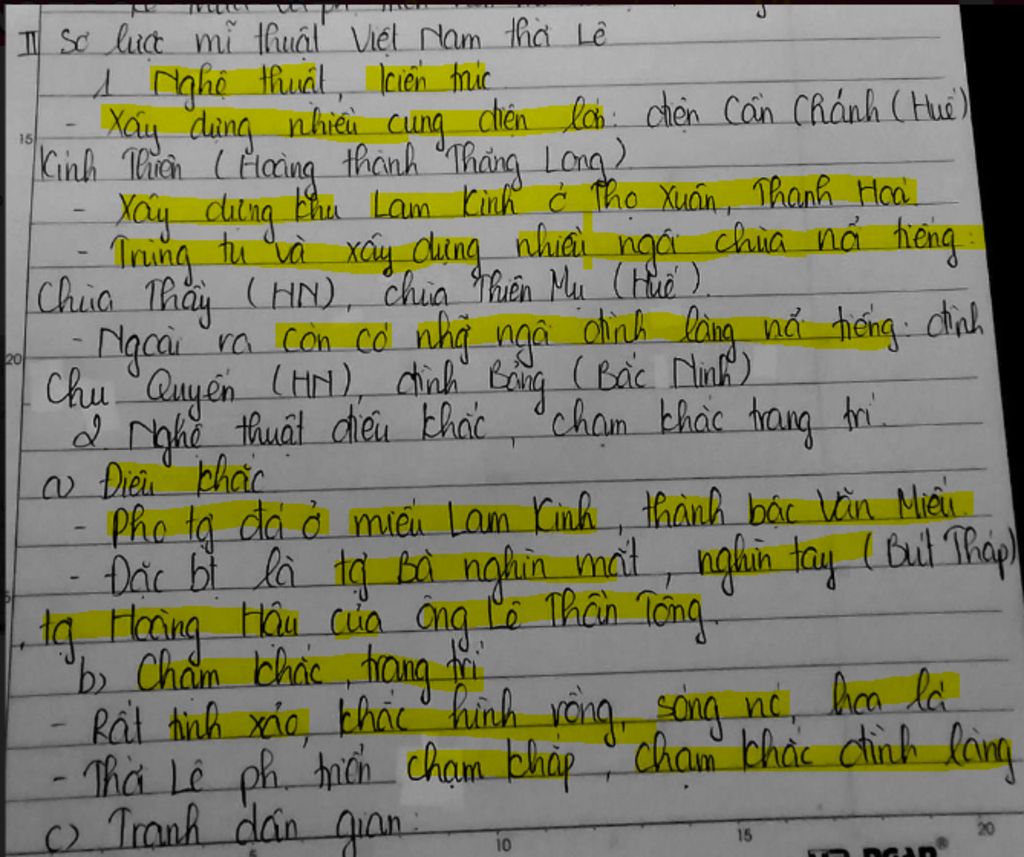 II Sơ lược mĩ thuật Việt Nam thời Lê
1 Nghệ thuật, kiến trúc
- Xây dựng nhiều cung điện lớn: điện Cần Chánh (Huế)
Kính Thiên (Hoàng thành Thăng Long)
- Xây dựng khu Lam Kinh ở Thọ Xuân, Thanh Hoá
- Trùng tu và xây dựng nhiều ngôi chùa nổ tiếng:
Chùa Thầy (HN), chùa Thiên Mụ (Huế).
- Ngoài ra còn có nhg ngô đình làng nổ tiếng: đình
Chu Quyến (HN), đình Bảng (Bắc Ninh)
2 Nghệ thuật điêu khắc, chạm khắc trang trí.
a) Điêu khắc
- Pho tg đá ở miếu Lam Kinh, thành bậc Văn Miếu
- Đặc bt là tg Bà nghìn mắt, nghìn tay (Bút Tháp)
, tg Hoàng Hậu của ông Lê Thần Tông.
b) Chạm khắc, trang trí
- Rất tinh xảo, khắc hình rồng, sóng nc, hoa lá
- Thời Lê ph. triển chạm khắp, chạm khắc đình làng
c) Tranh dân gian:
15
20
5
10
15
20